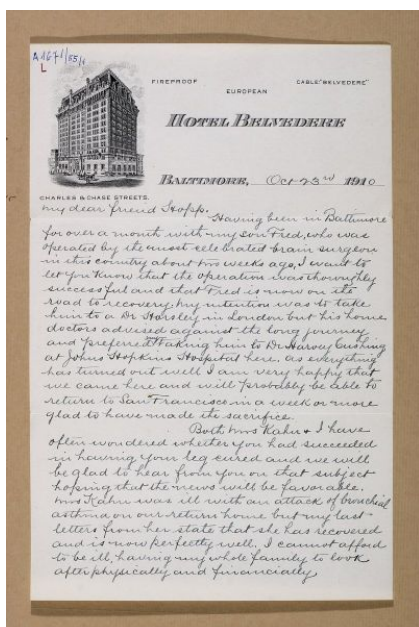 A 1671/55/1
L
FIREPROOF
EUROPEAN
CABLE "BELVEDERE"
HOTEL BELVEDERE
BALTIMORE, Oct-23rd 1910
CHARLES & CHASE STREETS.
My dear friend Hopp.
Having been in Baltimore
for over a month with my son Fred, who was
operated by the most celebrated brain surgeon
in this country about two weeks ago, I want to
let you know that the operation was thoroughly
successful and that Fred is now on the
road to recovery, my intention was to take
him to a Dr Horsley in London but his home
doctors advised against the long journey
and preferred taking him to Dr Harvey Cushing
at Johns Hopkins Hospital here, as everything
has turned out well I am very happy that
we came here and will probably be able to
return to San Francisco in a week or more
glad to have made the sacrifice.
Both Mrs Kahn & I have
often wondered whether you had succeeded
in having your leg cured and we will
be glad to hear from you on that subject
hoping that the news will be favorable.
Mrs Kahn was ill with an attack of bronchial
asthma on our return home but my last
letters from her state that she has recovered
and is now perfectly well. I cannot afford
to be ill, having my whole family to look
after physically and financially